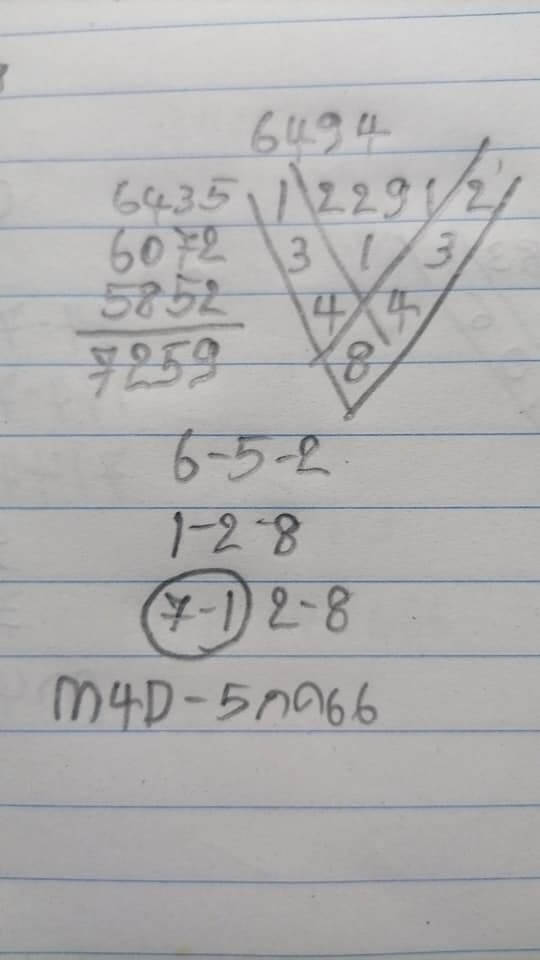 6494
6435 1 2291 2
6072 3 1 3
5852 4 4
7259 8
6-5-2
1-2-8
7-1 2-8
M4D-5กค66